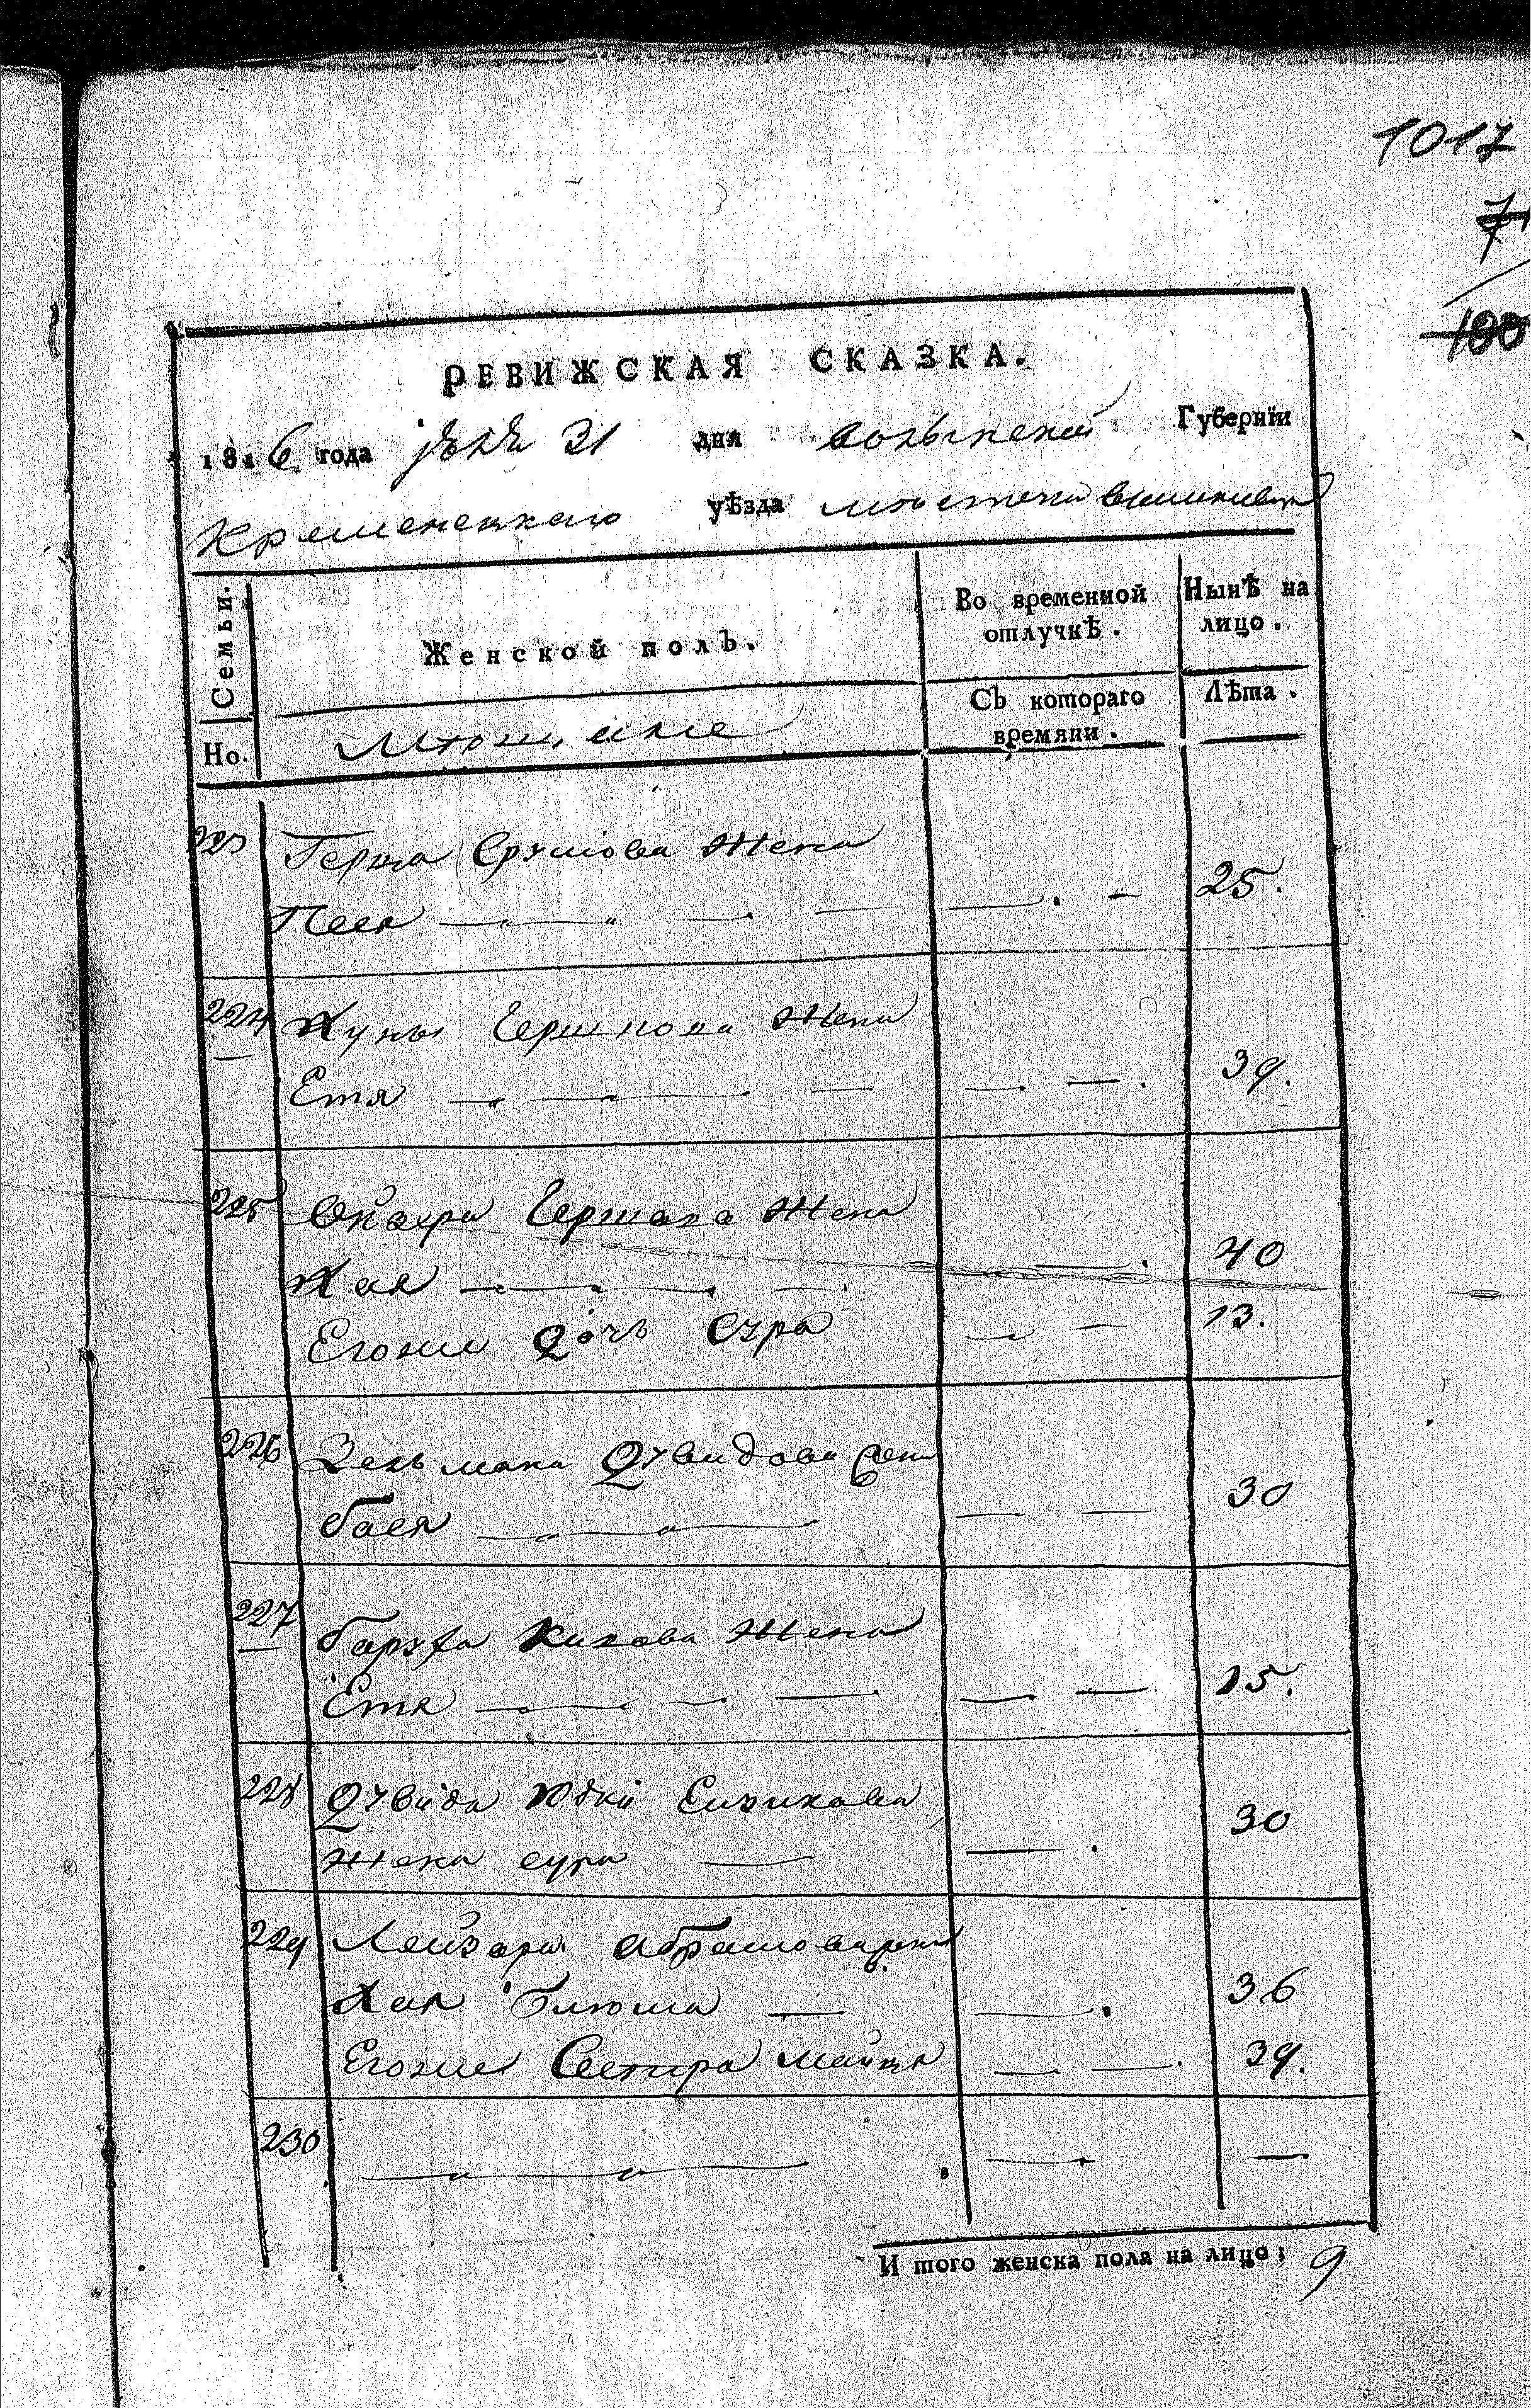 1017
7
100
РЕВИЖСКАЯ СКАЗКА.
1816 года 31 дня волынской Губерніи
Кременецкаго уѣзда мѣстечка
Семьи.
Но.
Женской полъ.
Мѣщане
Во временной отлучкѣ.
Съ котораго времяни.
Нынѣ на лицо.
Лѣта.
223 Герша Срулiова Жена
Песя — — — — 25.
224 Хуны Гершкова Жена
Етя — — — — 39.
225 Гершова Жена
Хая — — — — 40
Егоже Дочь Сура — — 13.
226 Зельмана Дувидова жена
бася — — — — 30
227 баруха Жена
Етя — — — — 15.
228 Дувида Юдки
жена сура — — 30
229 Лейзора Абрамова жена
Хая — — 36
Егоже Сестра — — 39.
230 — — —
И того женска пола на лицо: 9